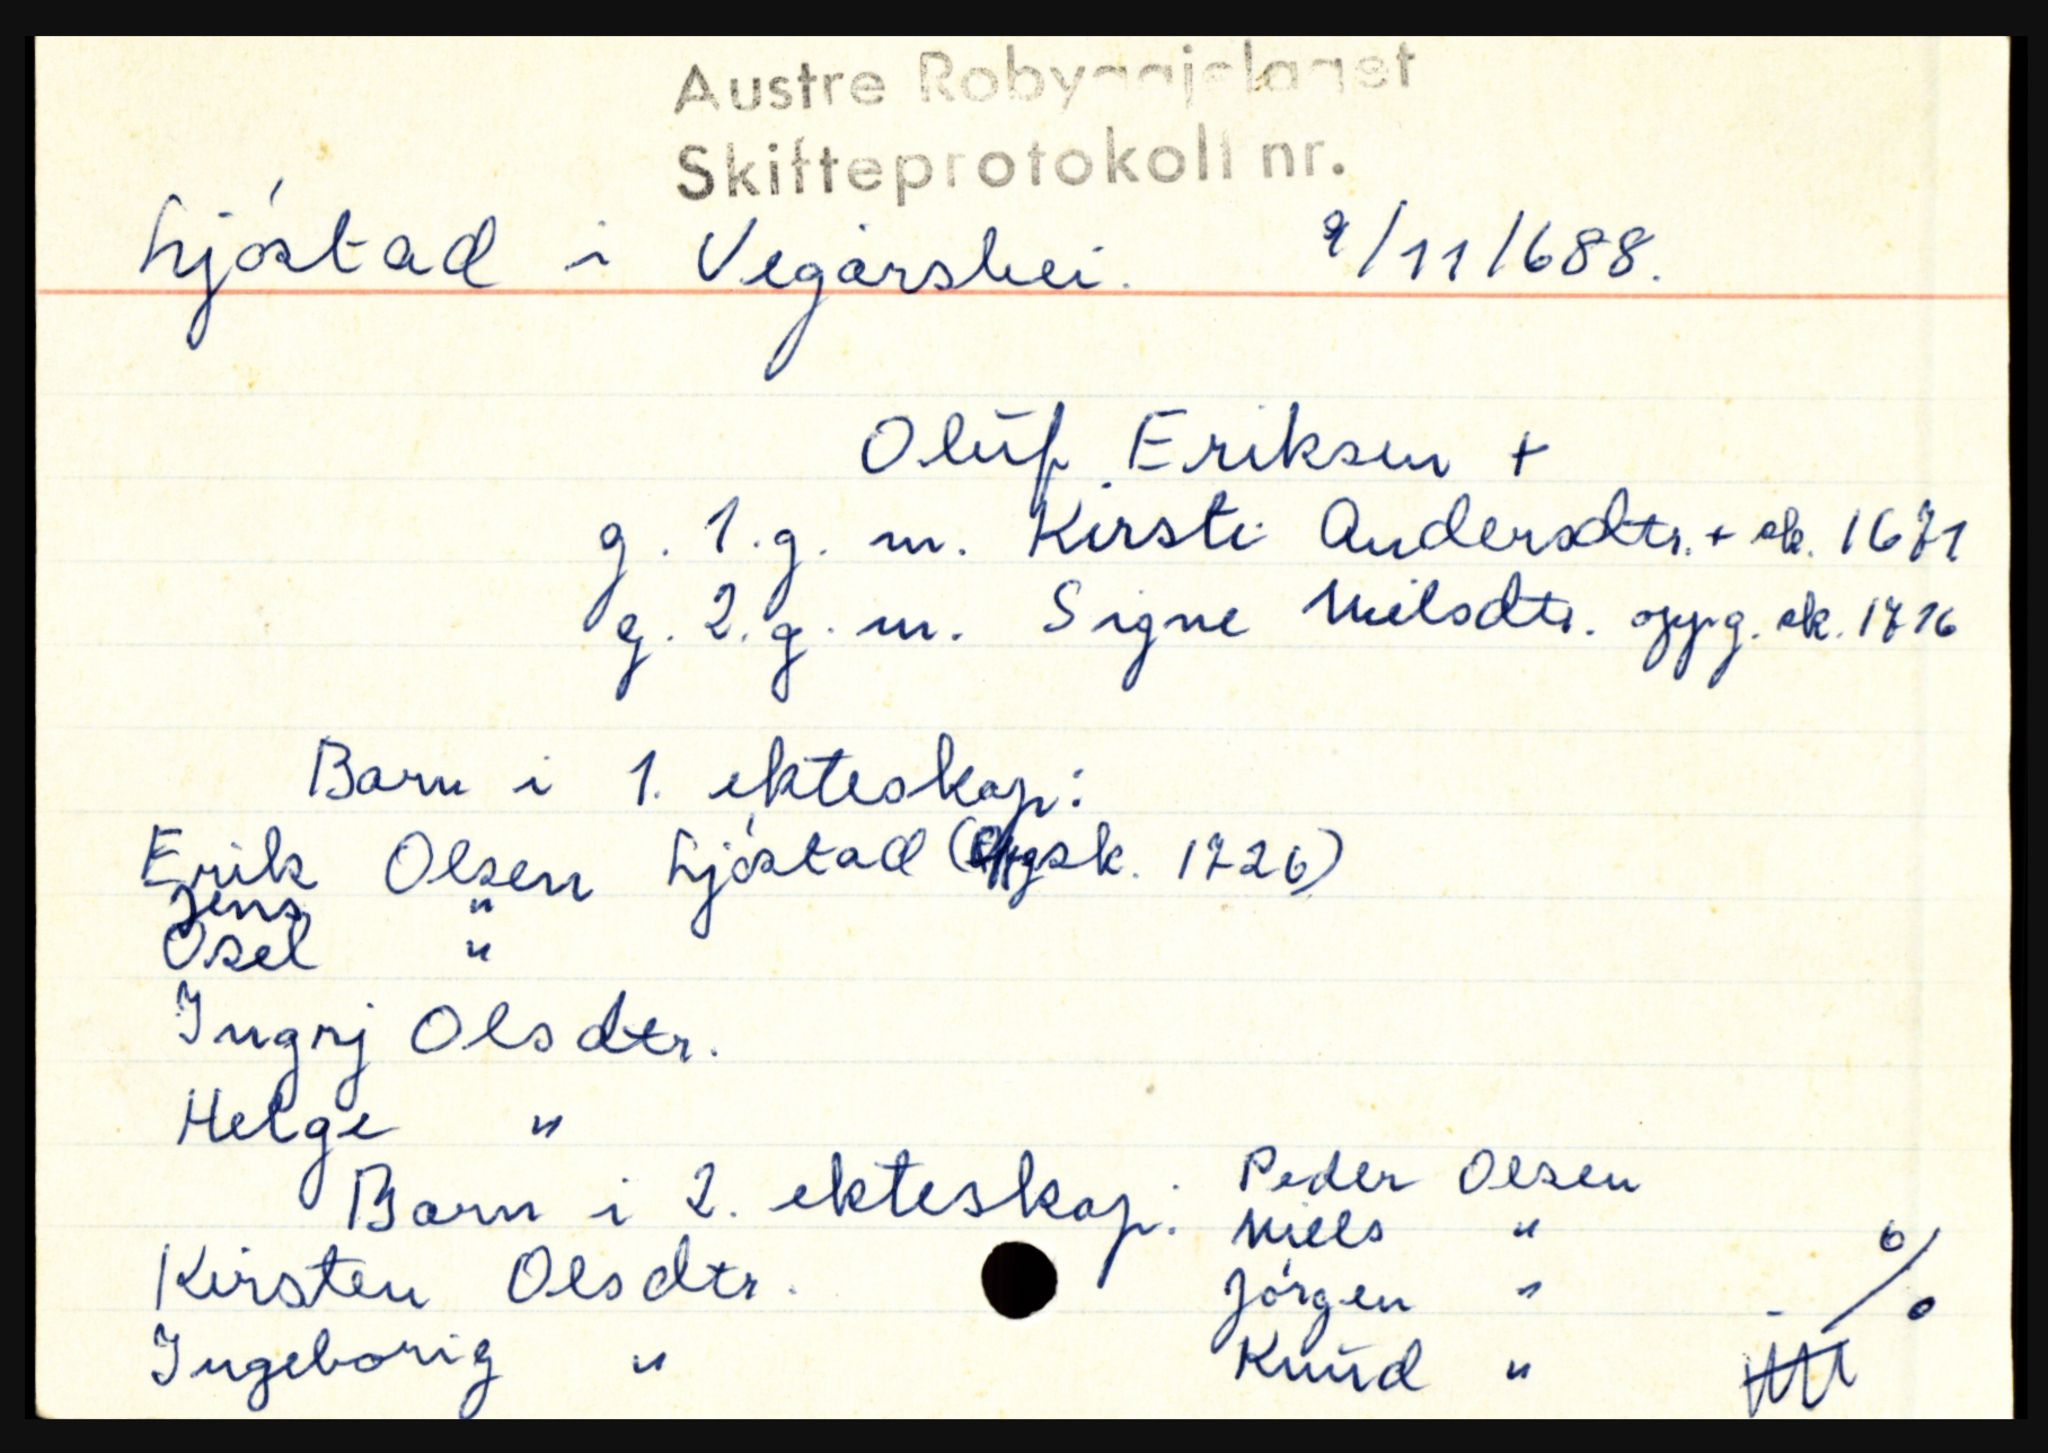 Austre Robyggjelaget
Skifteprotokoll nr.
Ljóstad i Vegårshei. 9/11 1688.
Oluf Eriksen +
g. 1.g. m. Kirsti Andersdtr. + sk. 1671
g. 2.g. m. Signe Nielsdtr. oppg. sk. 1716
Barn i 1. ekteskap:
Erik Olsen Ljóstad (oppgsk. 1726)
Jens "
Osel "
Ingrj Olsdtr.
Helge "
Barn i 2. ekteskap:
Kirsten Olsdtr.
Ingeborig "
Peder Olsen
Niels "
Jórgen "
Knud "
- %